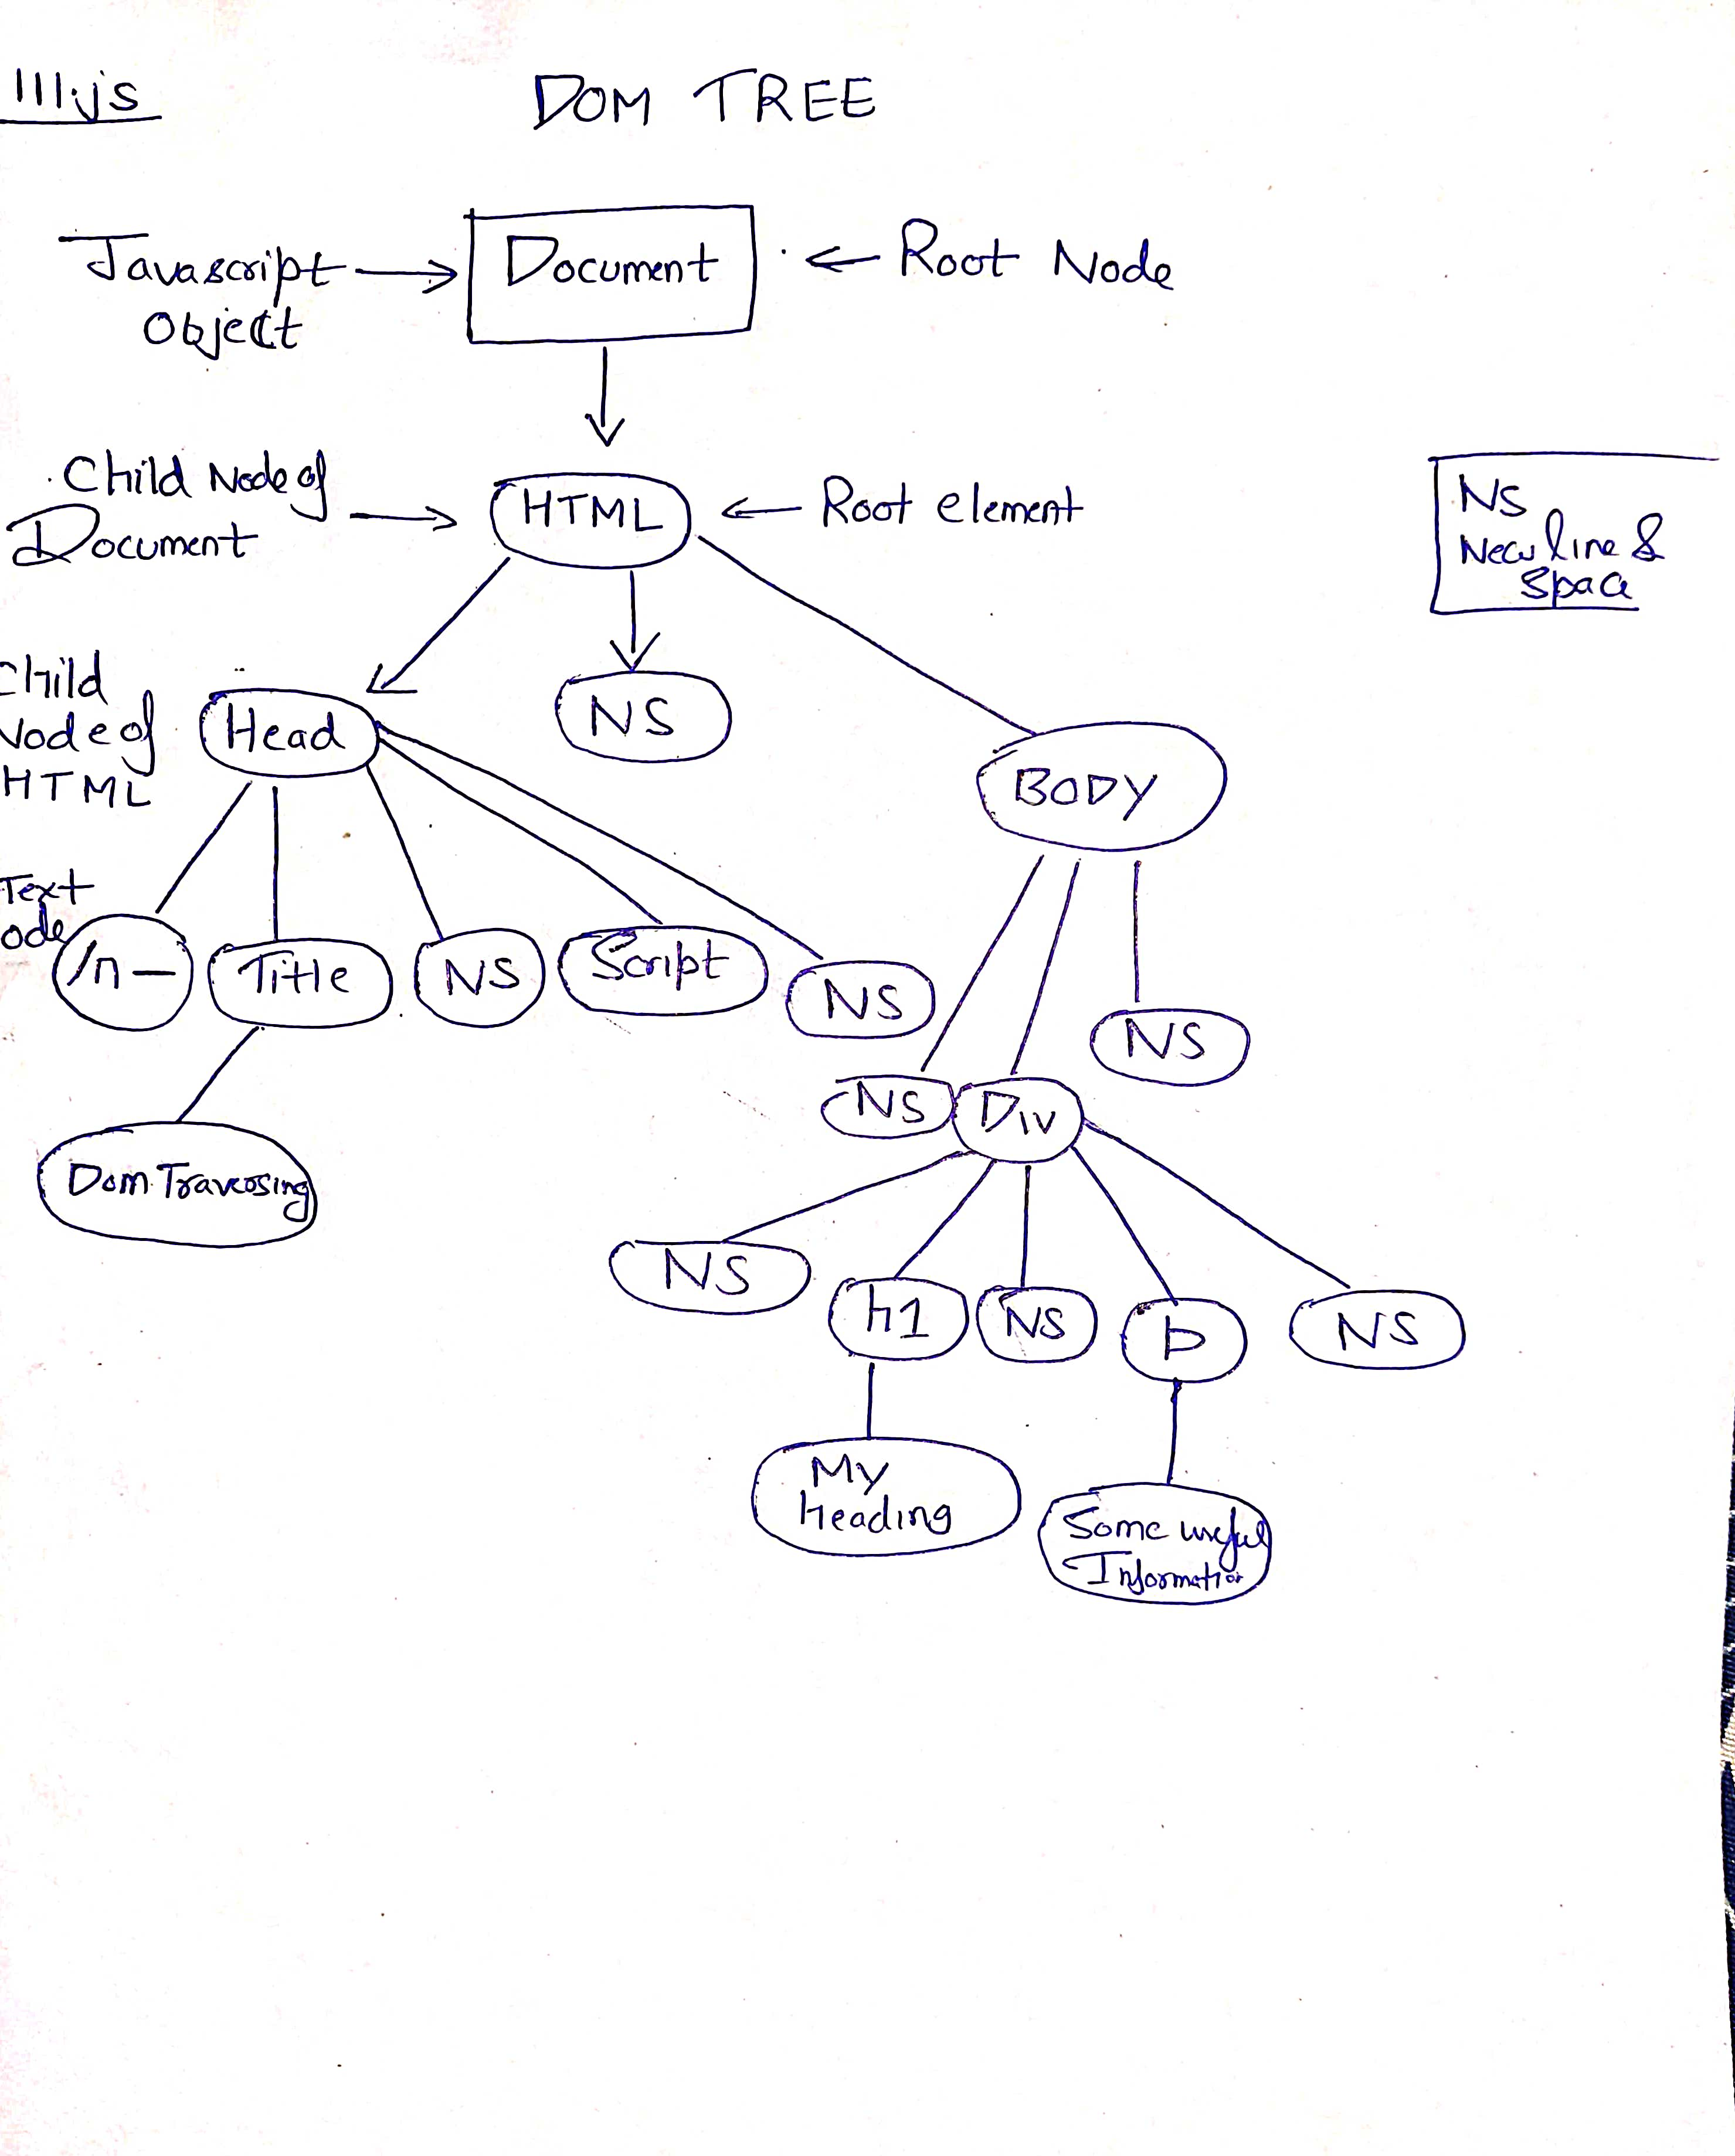 111.js
DOM TREE
Javascript
Object
Document
Root Node
Child Node of
Document
HTML
Root element
NS
New line &
Space
Child
Node of
HTML
Head
NS
BODY
Text
ode
/n —
Title
NS
Script
NS
NS
NS
Div
Dom Traversing
NS
h1
NS
p
NS
My
Heading
Some useful
Information